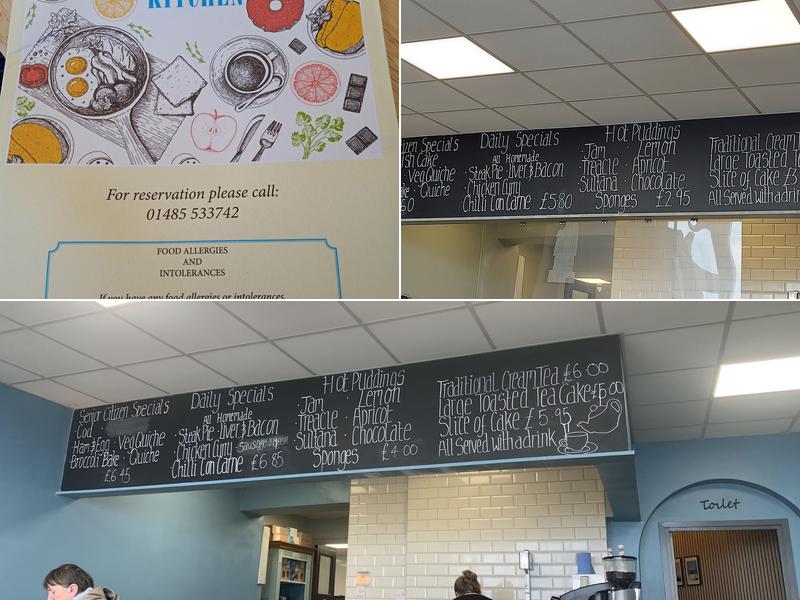 KITCHEN
For reservation please call:
01485 533742
FOOD ALLERGIES
AND
INTOLERANCES
If you have any food allergies or intolerances,
Daily Specials
All Homemade
Steak Pie · Liver & Bacon
· Chicken Curry
Chilli Con Carne £5.80
Hot Puddings
Jam · Lemon
Treacle · Apricot
Sultana · Chocolate
Sponges £2.95
Traditional Cream
Large Toasted
Slice of Cake £3
All Served with a drin
Cake
· Veg Quiche
· Quiche
Senior Citizen Specials
· Cod
· Ham & Egg · Veg Quiche
· Broccoli Bake · Quiche
£6 45
Daily Specials
All Homemade
· Steak Pie · Liver & Bacon
· Chicken Curry
Chilli Con Carne £6 85
Hot Puddings
Jam · Lemon
Treacle · Apricot
Sultana · Chocolate
Sponges £4 00
Traditional Cream Tea £6 00
Large Toasted Tea Cake £5.00
Slice of Cake £5 95
All Served with a drink
Toilet